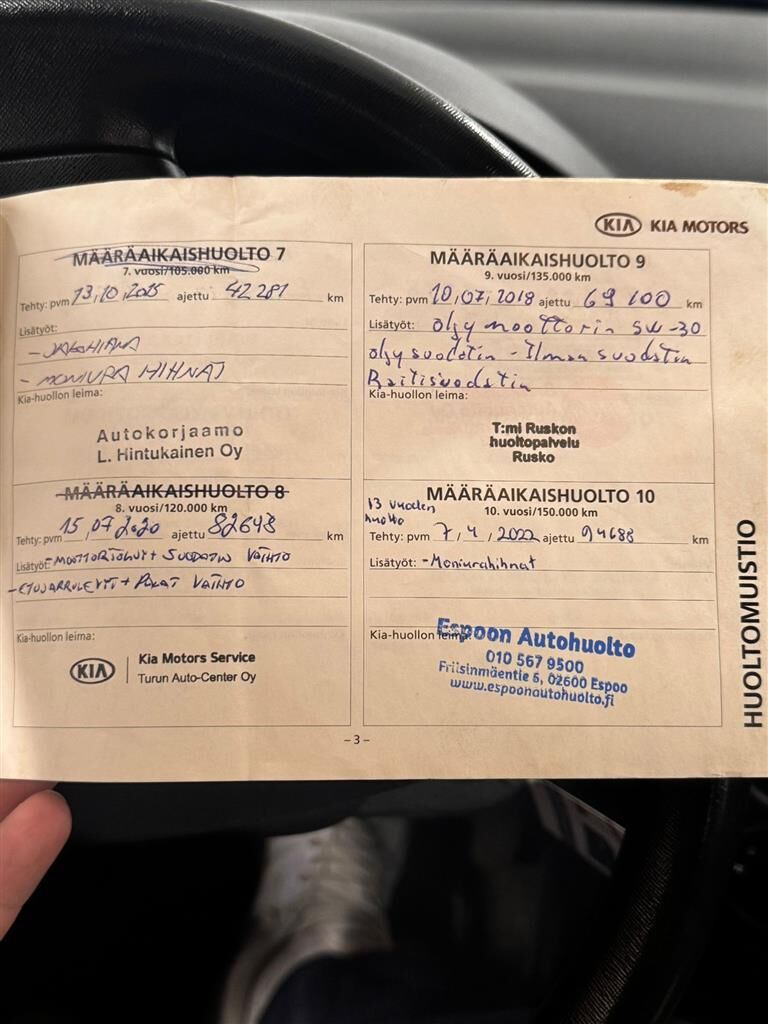 KIA KIA MOTORS
MÄÄRÄAIKAISHUOLTO 7
7. vuosi/105.000 km
Tehty: pvm 13,10,2015 ajettu 42 281 km
Lisätyöt:
- JAKOHIHNA
- MONIURA HIHNAT
Kia-huollon leima:
Autokorjaamo
L. Hintukainen Oy
MÄÄRÄAIKAISHUOLTO 8
8. vuosi/120.000 km
Tehty: pvm 15,07 2020 ajettu 82648 km
Lisätyöt: - MOOTTORIÖLJYT + SUODATIN VAIHTO
- ETUJARRULEVYT + PALAT VAIHTO
Kia-huollon leima:
KIA Kia Motors Service
Turun Auto-Center Oy
MÄÄRÄAIKAISHUOLTO 9
9. vuosi/135.000 km
Tehty: pvm 10,07,2018 ajettu 69 100 km
Lisätyöt: öljy moottorin 5W-30
öljysuodatin - Ilmansuodatin
Raitisuodatin
Kia-huollon leima:
T:mi Ruskon
huoltopalvelu
Rusko
MÄÄRÄAIKAISHUOLTO 10
10. vuosi/150.000 km
13 vuoden
huolto
Tehty: pvm 7,4,2022 ajettu 94688 km
Lisätyöt: - Moniurahihnat
Kia-huollon leima:
Espoon Autohuolto
010 567 9500
Friisinmäentie 6, 02600 Espoo
www.espoonautohuolto.fi
HUOLTOMUISTIO
– 3 –